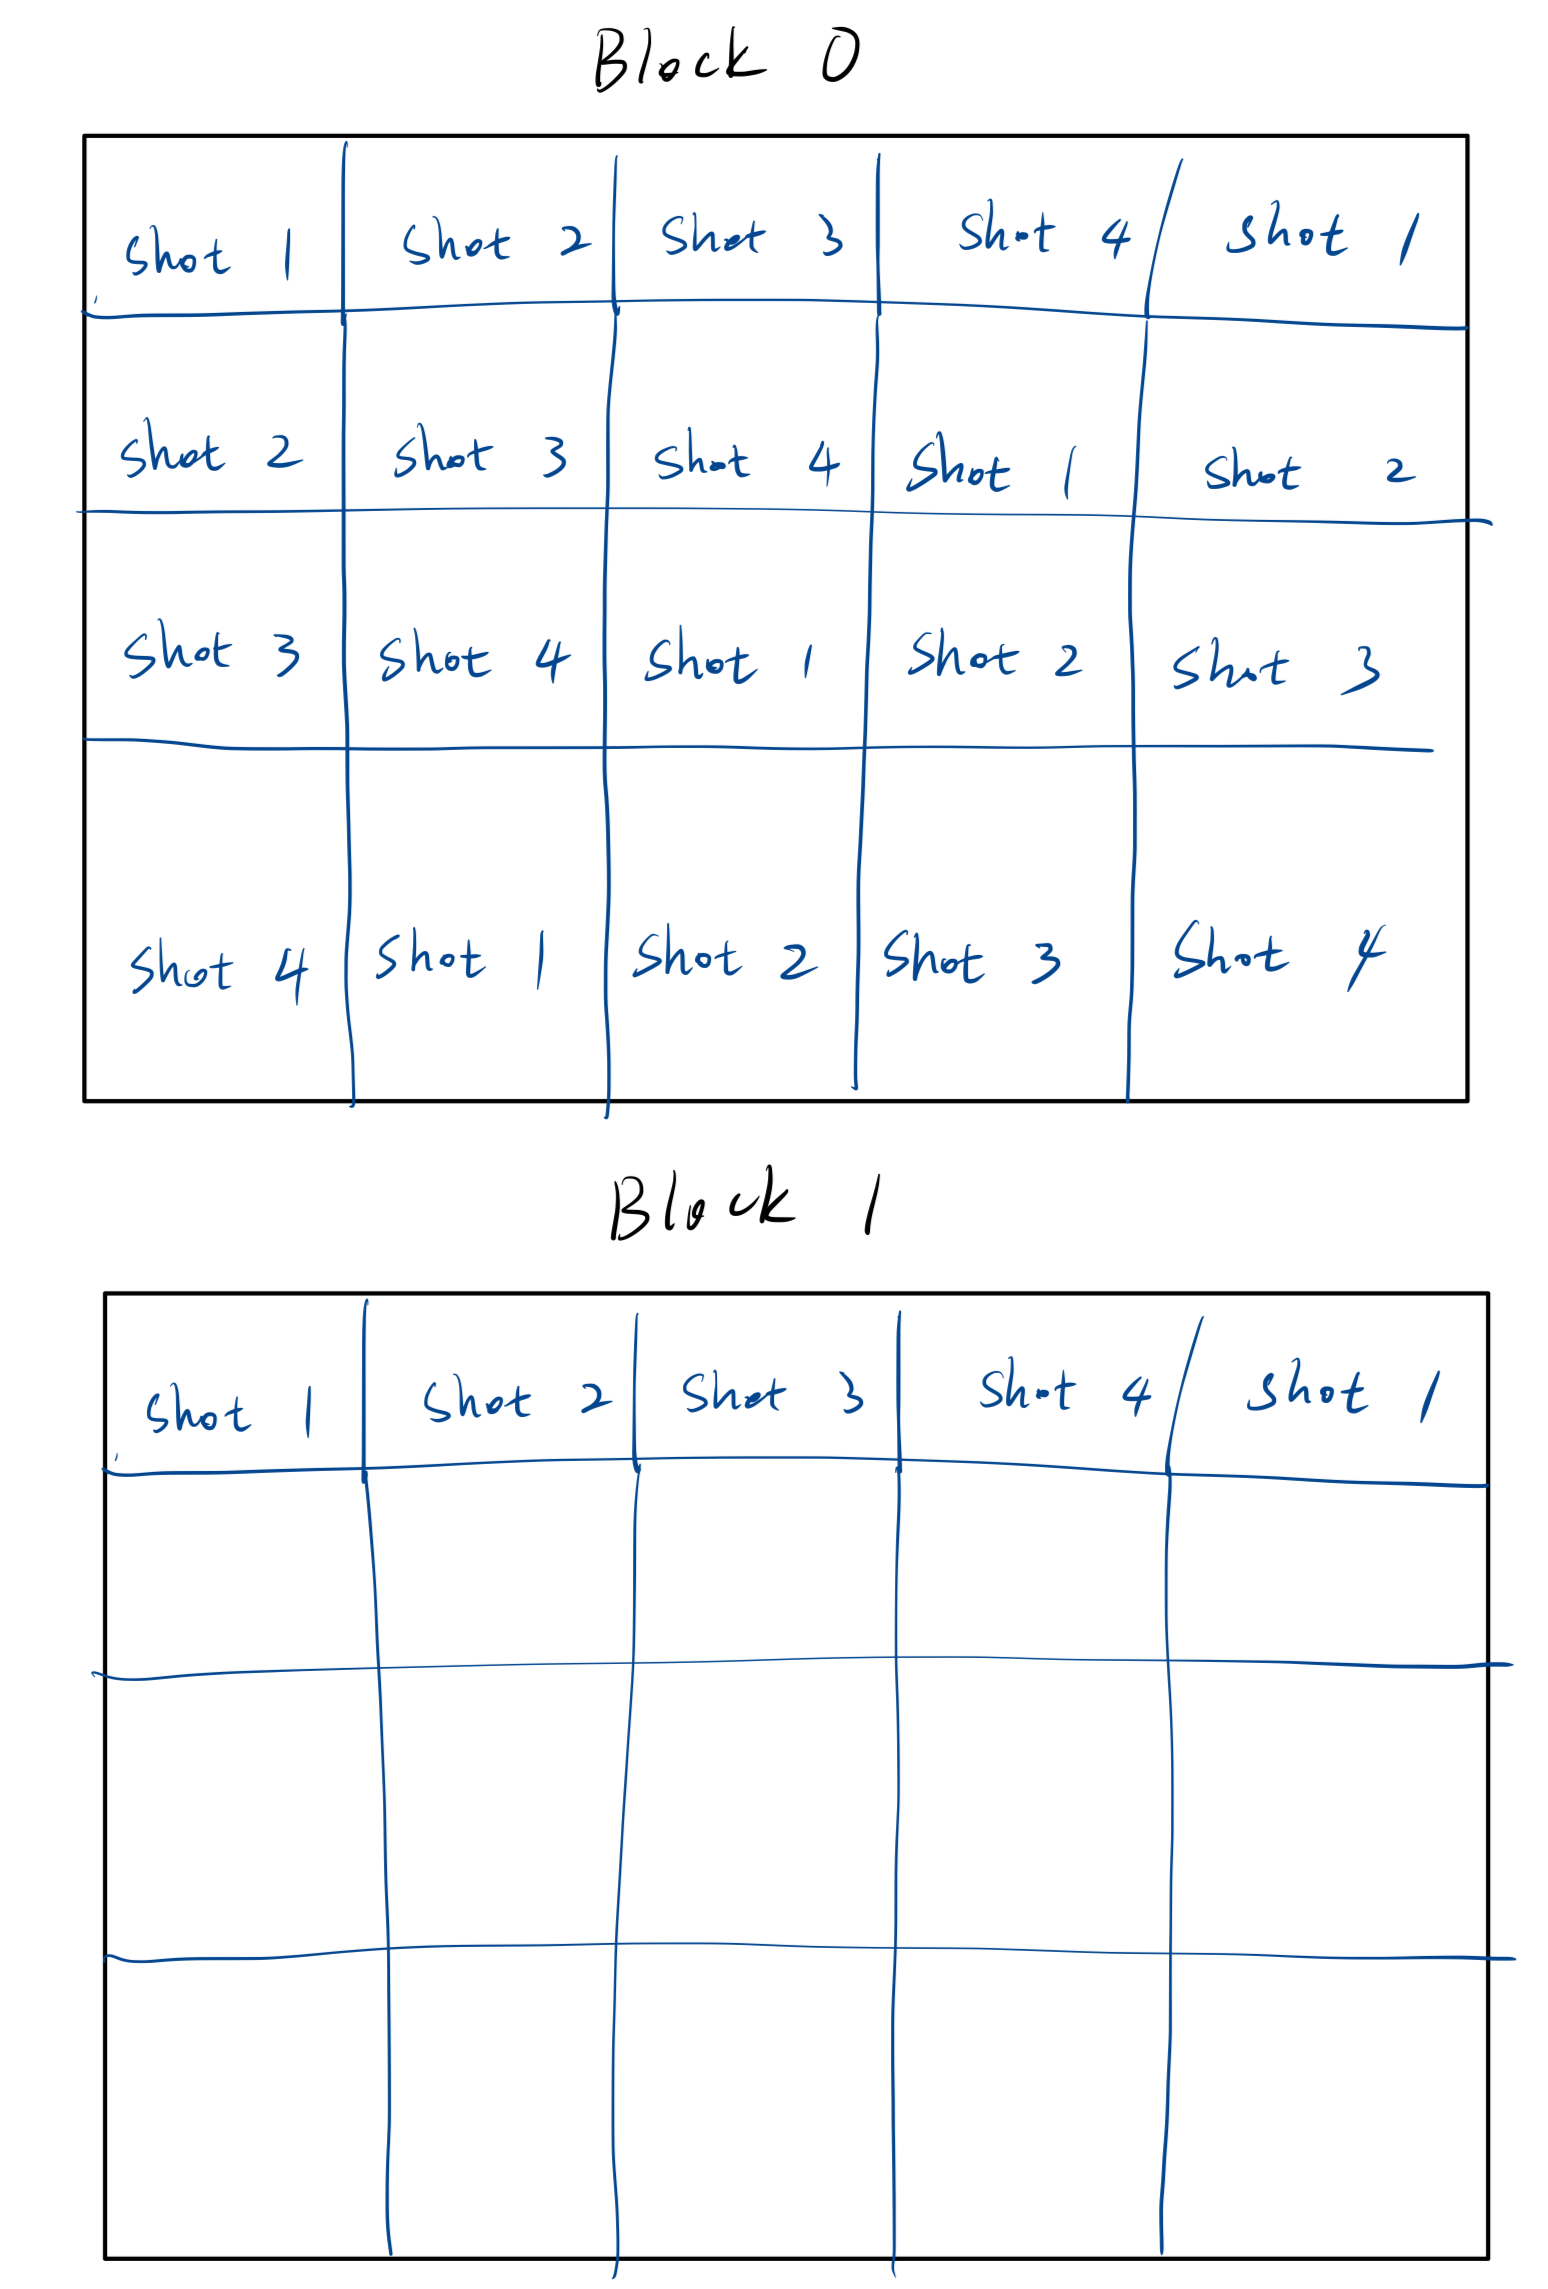 Block 0
Shot 1 Shot 2 Shot 3 Shot 4 Shot 1
Shot 2 Shot 3 Shot 4 Shot 1 Shot 2
Shot 3 Shot 4 Shot 1 Shot 2 Shot 3
Shot 4 Shot 1 Shot 2 Shot 3 Shot 4
Block 1
Shot 1 Shot 2 Shot 3 Shot 4 Shot 1